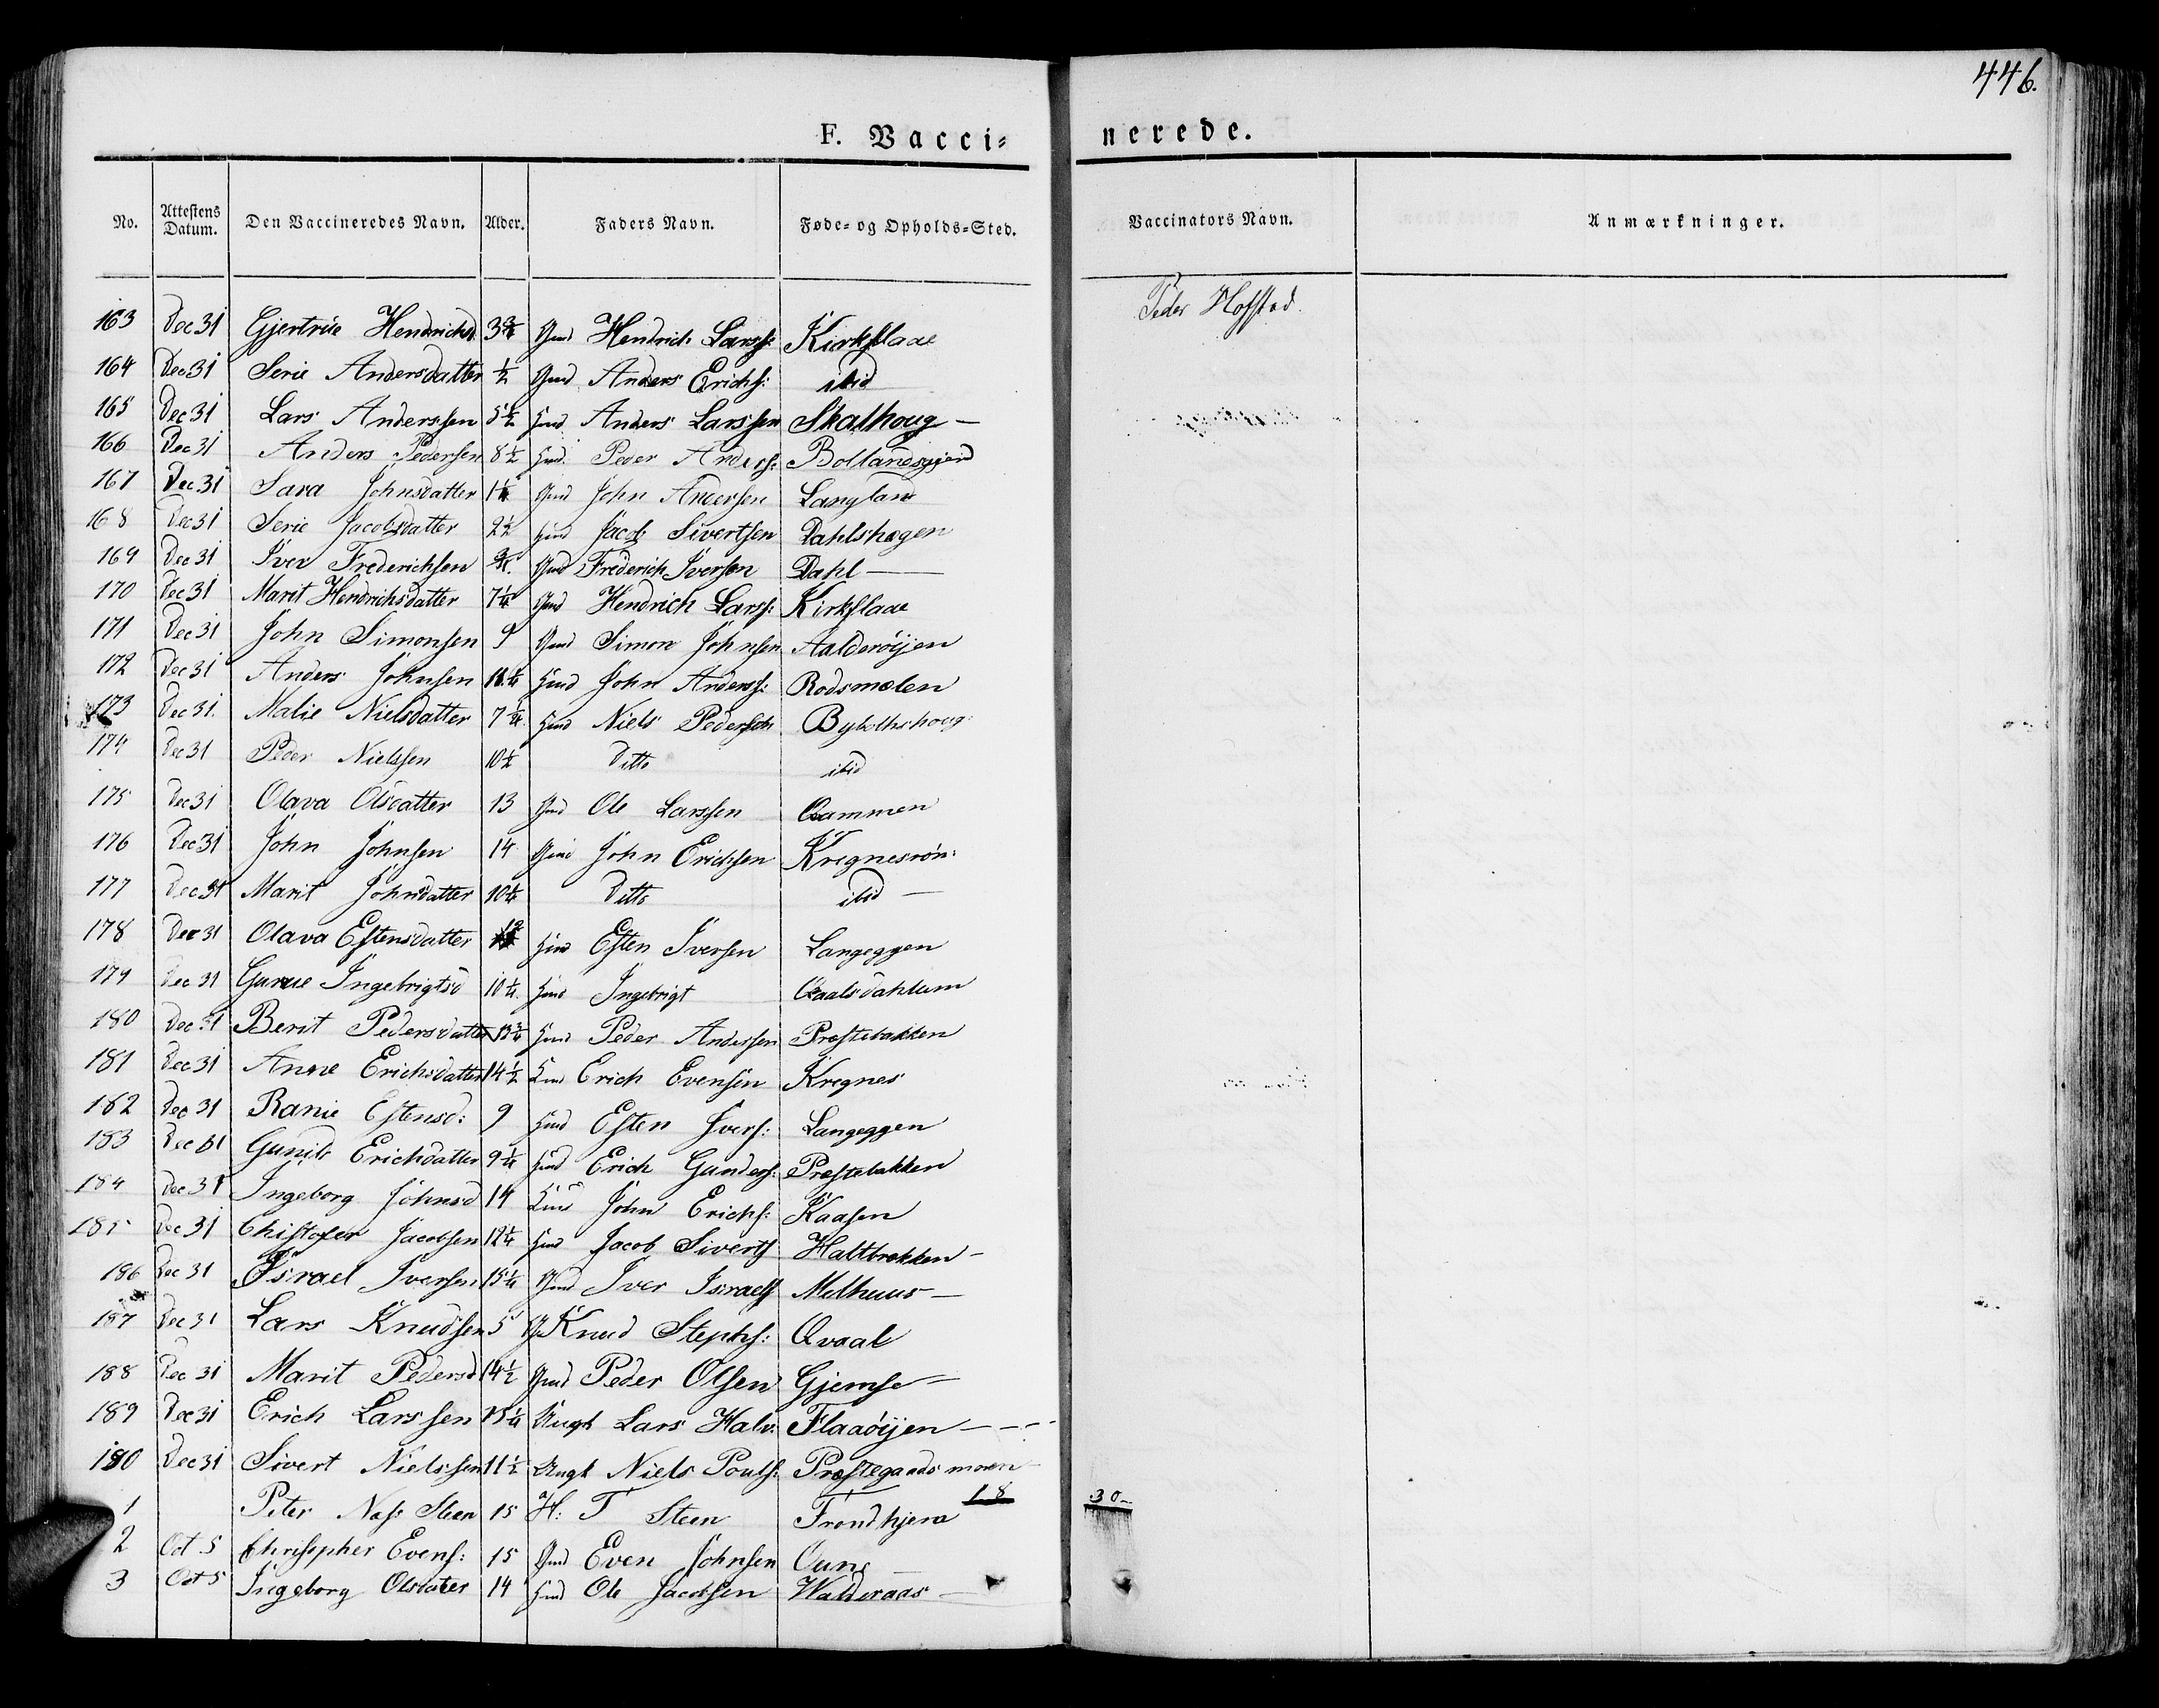 446.
F. Vacci-nerede.
No. Attestens Datum. Den Vaccineredes Navn. Alder. Faders Navn. Føde- og Opholds-Sted. Vaccinators Navn. Anmærkninger.
163 Dec 31 Gjertrue Hendrichs 3¾ Gmd Hendrich Larss: Kirkflaae Peder Hofstad.
164 Dec 31 Serie Andersdatter ½ Gmd Anders Erichs: ibid
165 Dec 31 Lars Anderssen 5½ Hmd Anders Larssen Skalhoug
166 Dec 31 Anders Pedersen 8½ Hmd Peder Anders: Bollandsgjerd
167 Dec. 31 Sara Johnsdatter 1¼ Gmd John Andersen Langland
168 Dec 31 Serie Jacobsdatter 2½ Hmd Jacob Sivertsen Dahlshagen
169 Dec 31 Iver Frederichsen ¾. Gmd Frederich Iversen Dahl
170 Dec 31 Marit Hendrichsdatter 7¼ Gmd Hendrich Larss: Kirkflaae
171 Dec 31 John Simonsen 9 Gmd Simon Johnsen Aalderøijen
172 Dec 31 Anders Johnsen 11¼ Hmd John Anderss: Rodsmælen
173 Dec 31. Malie Nielsdatter 7¾ Hmd Niels Pedersen
174 Dec 31 Peder Nielssen 10½ Ditto ibid
175 Dec 31 Olava Olsdatter 13 Gmd Ole Larssen Qvammen
176 Dec 31 John Johnsen 14 Gmd John Erichsen Kregnesrøn:
177 Dec 31 Marit Johnsdatter 10¼ Ditto ibid
178 Dec 31 Olava Estensdatter Hmd Esten Iversen Langeggen
179 Dec 31 Gurue Ingebrigtsd 10¼. Hmd Ingebrigt Qvaalsdahlum
180 Dec 31 Berit Pedersdatter 13¾ Hmd Peder Andersen Præstebakken
181 Dec 31 Anne Erichsdatter 14½ Lmd Erich Evensen Kregnes
182 Dec 31 Ranie Estensd: 9 Hmd Esten Ivers: Langeggen
183 Dec 31 Gunild Erichdatter 9¼ Hmd Erich Gunders: Præstebakken
184 Dec 31 Ingeborg Johnsd 14 Lmd John Erichs: Kaasen
185 Dec 31 Chistofer Jacobsen 12¼ Hmd Jacob Siverts Haltbrekken
186 Dec 31 Israel Iversen 15¼ Gmd Iver Israels Melhuus
187 Dec 31 Lars Knudsen 5 G Knud Stephs: Qvaal
188 Dec 31 Marit Pedersd 14½ Gmd Peder Olsen Gjemse
189 Dec 31 Erich Larssen 15¼ Ungk Lars Halv: Flaaøijen
190 Dec 31 Sivert Nielssen 11½ Ungk Niels Pouls: Præstegaardsmoen
1 Peter Steen 15 H: T Steen Trondhjem 18 30
2 Oct 5 Christopher Evens: 15 Gmd Even Johnsen
3 Oct 5 Ingeborg Olsdater 14 Hmd Ole Jacobsen Walderaas